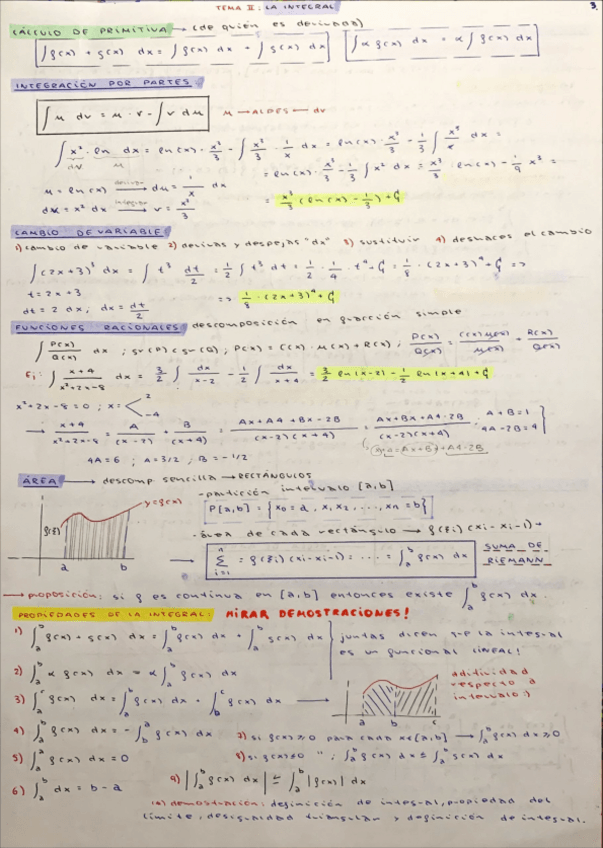 TEMA II: LA INTEGRAL
3.
CÁLCULO DE PRIMITIVA → (de quién es derivada)
∫f(x) + g(x) dx = ∫f(x) dx + ∫g(x) dx
∫α f(x) dx = α ∫f(x) dx
INTEGRACIÓN POR PARTES
∫u dv = u · v - ∫v du
u — ALPES ← dv
∫x² · ln dx = ln(x) · x³/3 - ∫ x³/3 · 1/x dx = ln(x) · x³/3 - 1/3 ∫ x³/x dx =
= ln(x) · x³/3 - 1/3 ∫x² dx = x³/3 · ln(x) - 1/9 x³ =
u = ln(x) derivar → du = 1/x dx
dx = x² dx integrar → v = x³/3
= x³/3 (ln(x) - 1/3) + C
CAMBIO DE VARIABLE
1) cambio de variable 2) derivas y despejas "dx" 3) sustituir 4) deshaces el cambio
∫(2x+3)³ dx = ∫t³ dt/2 = 1/2 ∫t³ dt = 1/2 · 1/4 · t⁴ + C = 1/8 · (2x+3)⁴ + C =>
t = 2x + 3
dt = 2 dx; dx = dt/2
=> 1/8 · (2x+3)⁴ + C
FUNCIONES RACIONALES descomposición en fracción simple
∫ P(x)/Q(x) dx ; gr(P) < gr(Q); P(x) = C(x) · M(x) + R(x);
Ej: ∫ x+4/x²+2x-8 dx = 3/2 ∫ dx/x-2 - 1/2 ∫ dx/x+4 = 3/2 ln(x-2) - 1/2 ln(x+4) + C
x²+2x-8 = 0; x = 2 -4
→ x+4/x²+2x-8 = A/(x-2) + B/(x+4) = Ax+A4+Bx-2B/(x-2)(x+4) = Ax+Bx+A4-2B/(x-2)(x+4) = A+B=1 4A-2B=4
4A=6 ; A=3/2 ; B=-1/2
ÁREA → descomp. sencilla → RECTÁNGULOS
- partición intervalo [a,b]
y=f(x)
P[a,b] = {x₀=a, x₁, x₂, ..., xₙ=b}
a b
- área de cada rectángulo → f(ξi)(xi-xi-1)
∑ i=1 n = f(ξi)(xi-xi-1) = ... = ∫ₐᵇ f(x) dx
SUMA DE RIEMANN
→ proposición: si f es continua en [a,b] entonces existe ∫ₐᵇ f(x) dx.
PROPIEDADES DE LA INTEGRAL: MIRAR DEMOSTRACIONES!
1) ∫ₐᵇ f(x) + g(x) dx = ∫ₐᵇ f(x) dx + ∫ₐᵇ g(x) dx
juntas dicen que la integral es un funcional LINEAL!
2) ∫ₐᵇ α f(x) dx = α ∫ₐᵇ f(x) dx
3) ∫ₐᶜ f(x) dx = ∫ₐᵇ f(x) dx + ∫ᵇᶜ f(x) dx →
a b c
aditividad respecto a intervalo :)
4) ∫ₐᵇ f(x) dx = - ∫ᵇₐ f(x) dx
7) si f(x) ≥ 0 para cada x∈[a,b] → ∫ₐᵇ f(x) dx ≥ 0
5) ∫ₐᵃ f(x) dx = 0
8) si f(x) ≤ 0 " ; ∫ₐᵇ f(x) dx ≤ ∫ₐᵇ g(x) dx
6) ∫ₐᵇ dx = b - a
9) |∫ₐᵇ f(x) dx| ≤ ∫ₐᵇ |f(x)| dx
demostración: definición de integral, propiedad del
límite, desigualdad triangular y definición de integral.